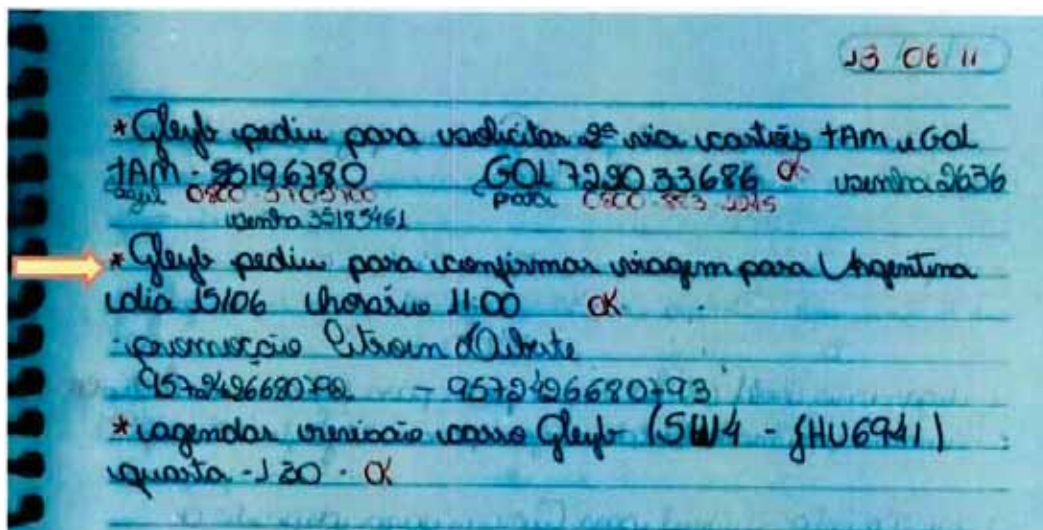 13 06 11
* Gleyb pediu para solicitar 2ª via cartões TAM e GOL
TAM - 25196780 GOL 722033686 OK senha 2636
0800 - 5705700 0800
senha 35185461
* Gleyb pediu para confirmar viagem para Argentina
dia 15/06 horário 11:00 OK
promoção Citroen
9572426680792 - 9572426680793
* agendar revisão carro Gleyb (SW4 - JHU6941)
quarta - OK